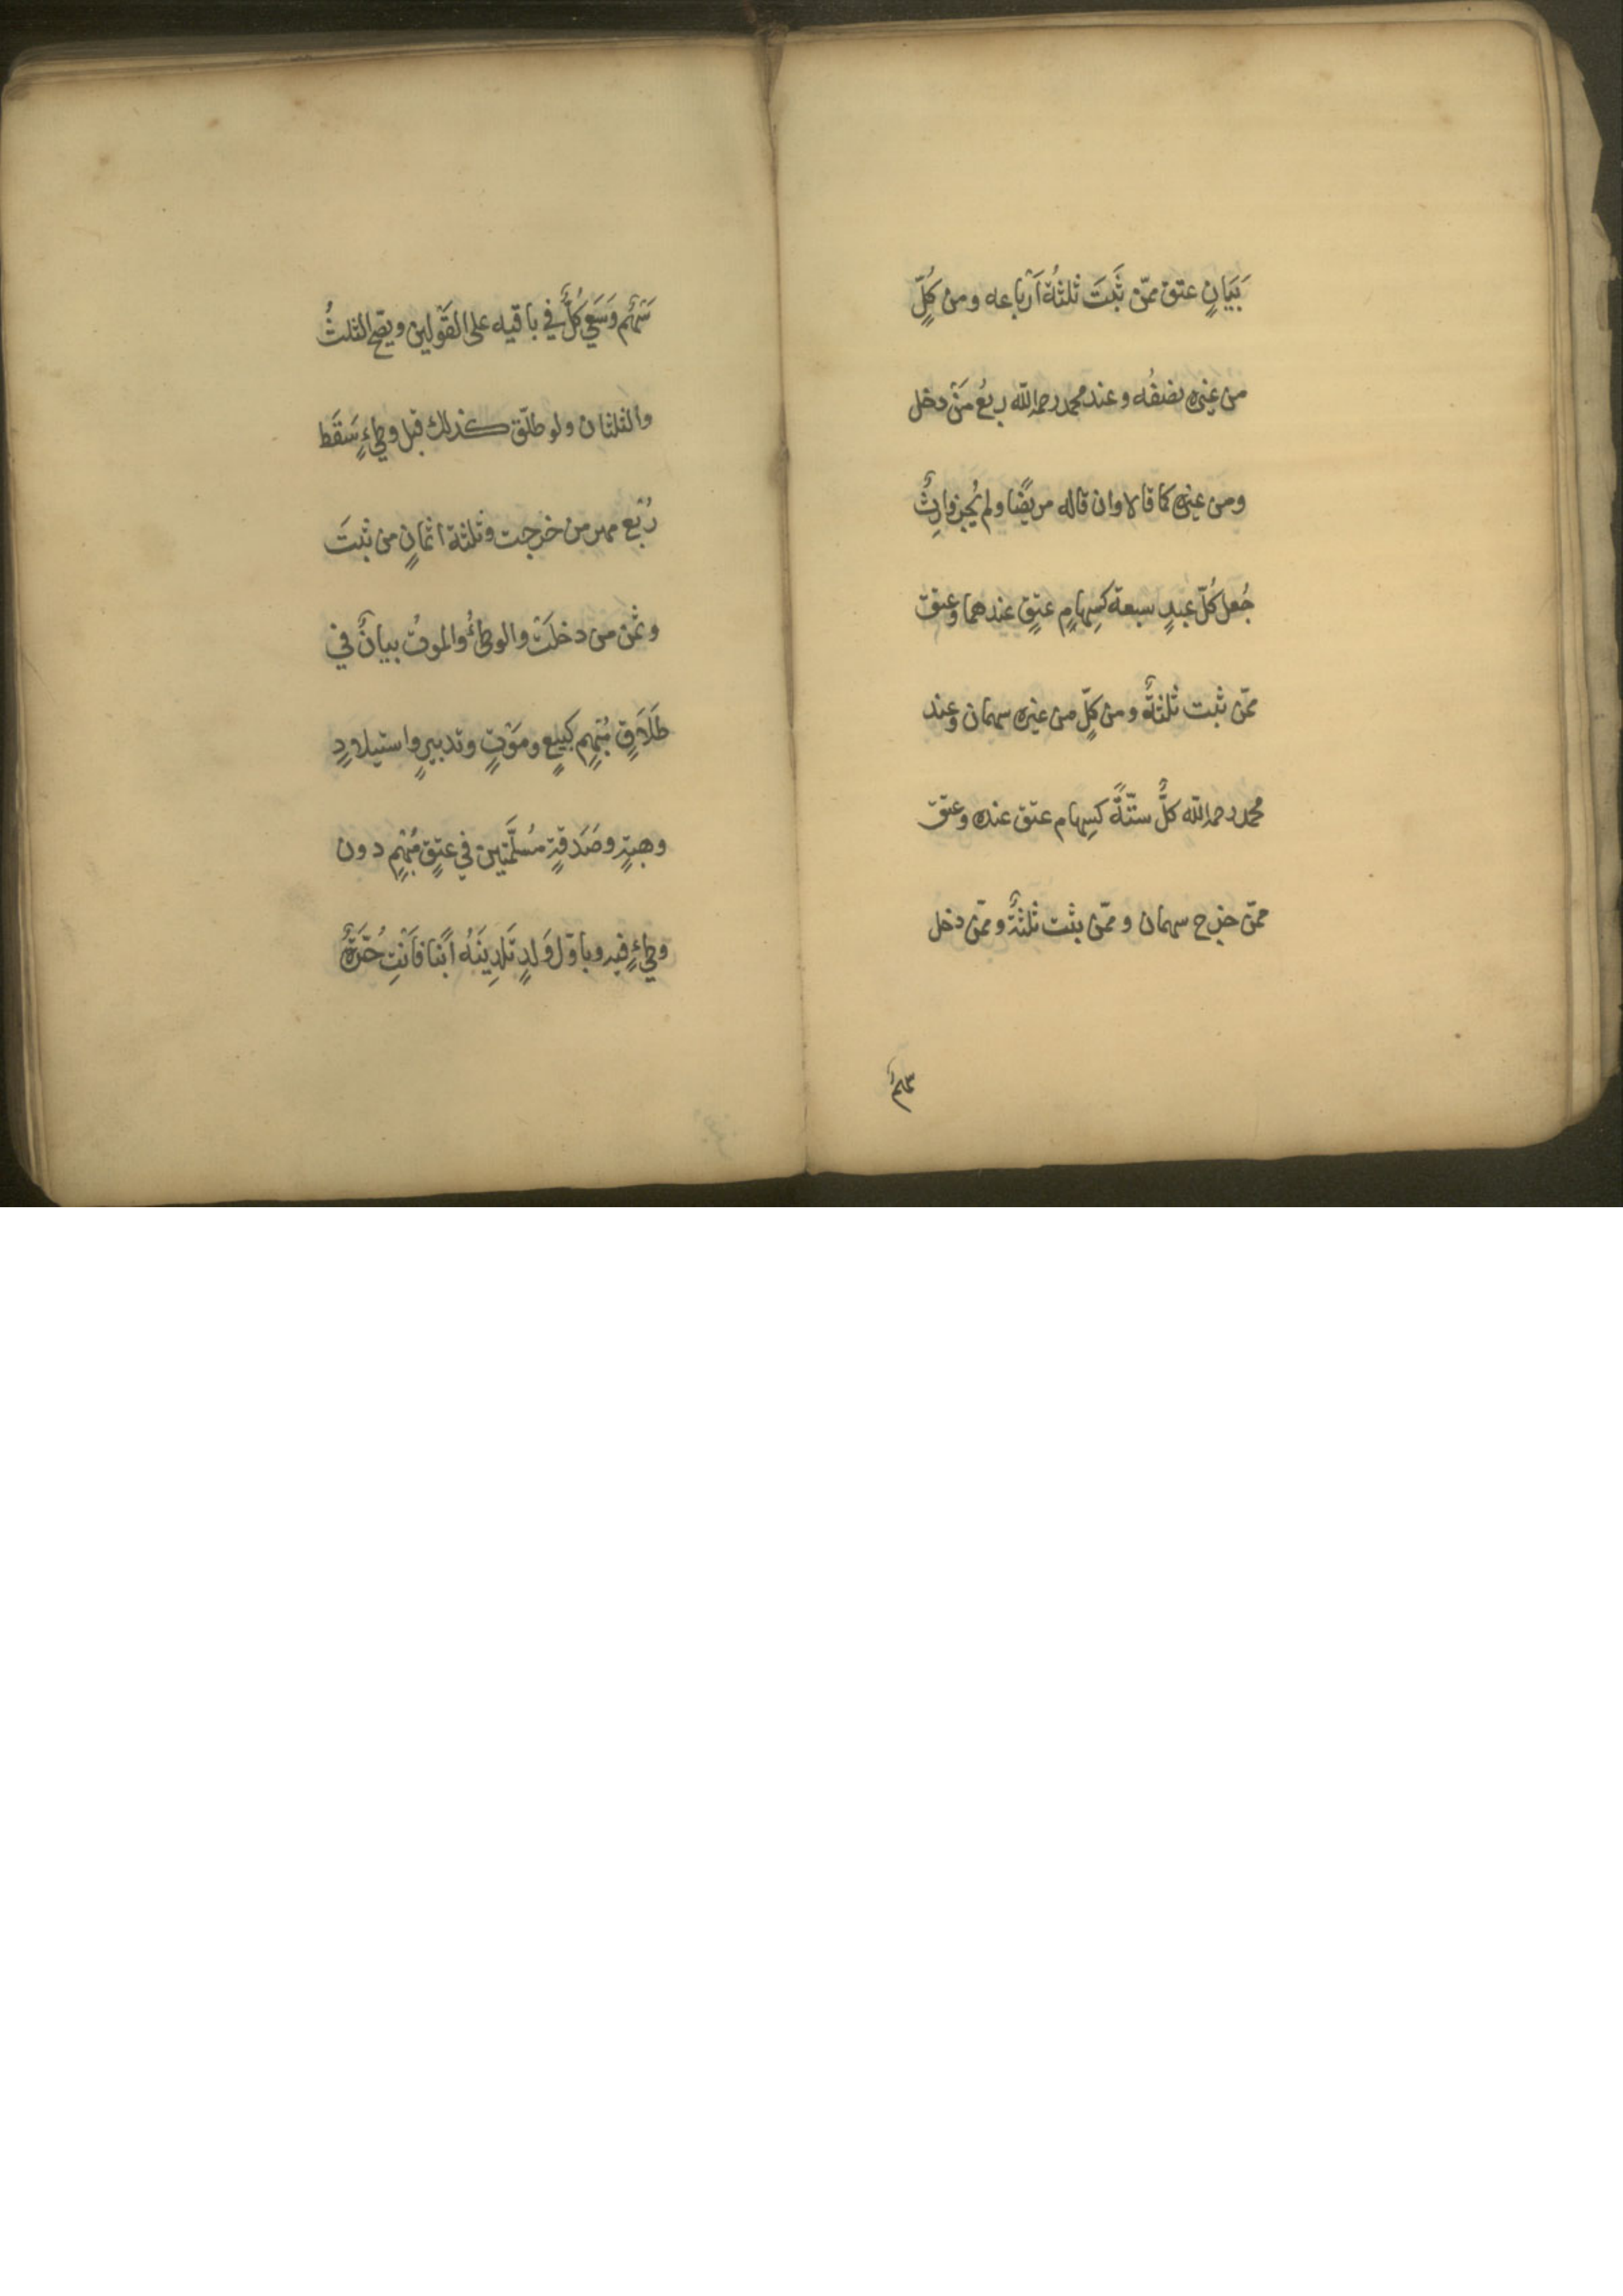 بَيَانٍ عتق ممّن ثَبَتَ ثلثةُ اَرْباعه ومن كُلٍّ
من غيره نصفُه وعند محمد رحمه الله ربعُ مَنْ دخل
ومن غيره كما قالا وان قاله مريضًا ولم يُجز وارِثٌ
جُعل كُلّ عبدٍ سبعة كسِهامِ عتقٍ عندهما وعتق
ممّن ثبت ثلثةٌ ومن كلٍّ من غيره سهمان وعند
محمد رحمه الله كلٌّ ستّةً كسِهام عتق عنده وعتق
ممّن خرج سهمان وممّن ثبت ثلثةٌ وممّن دخل
سهمٌ
سَهْمٌ وَسَعَي كُلٌّ في باقيه على القَوْلين ويصح الثلثُ
والثلثان ولو طلّق كذلك قبل وطئٍ سَقَط
رُبْع مهر من خرجت وثلثة اثمانٍ من ثبتَ
وثمن من دخلَتْ والوطئُ والموتُ بيانٌ في
طَلَاقٍ مُبْهمٍ كبيعٍ ومَوْتٍ وتدبيرٍ واستيلادٍ
وهبةٍ وصَدَقةٍ مُسلَّمتين في عتقٍ مُبْهمٍ دون
وطئٍ فيه وباَوّل وَلدٍ تَلدِينَهُ ابْنًا فاَنْتِ حُرّةٌ